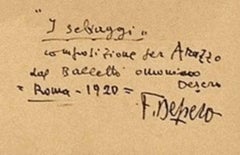 "I selvaggi"
composizione per Arazzo
dal Balletto omonimo
Depero
= Roma - 1920 =
F. Depero